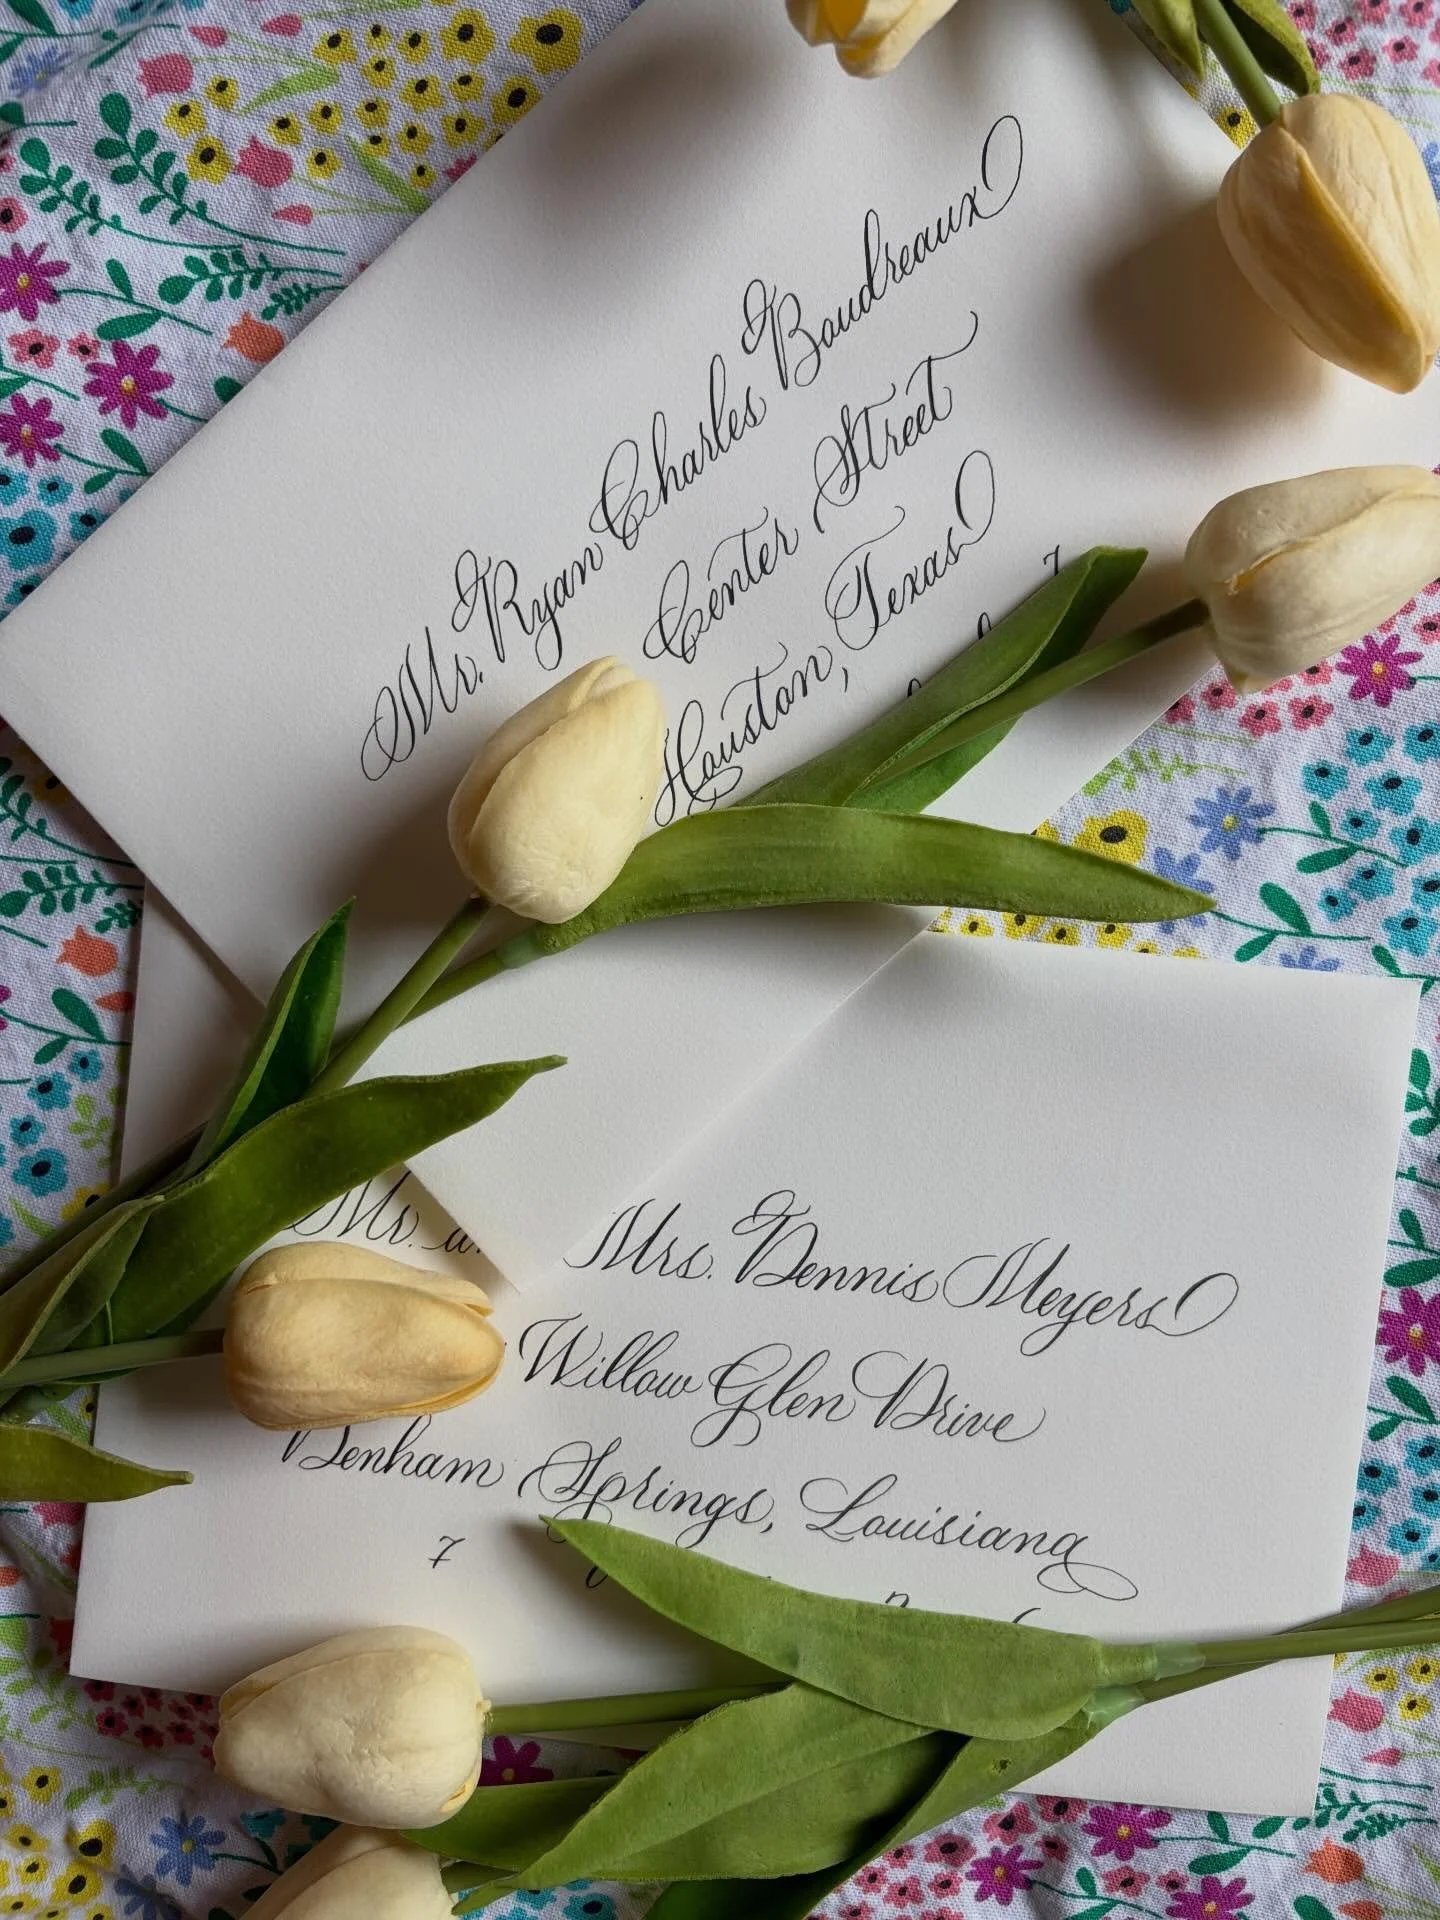 Mr. Ryan Charles Boudreaux
Center Street
Houston, Texas
7
Mr. Mrs. Dennis Meyers
Willow Glen Drive
Denham Springs, Louisiana
7